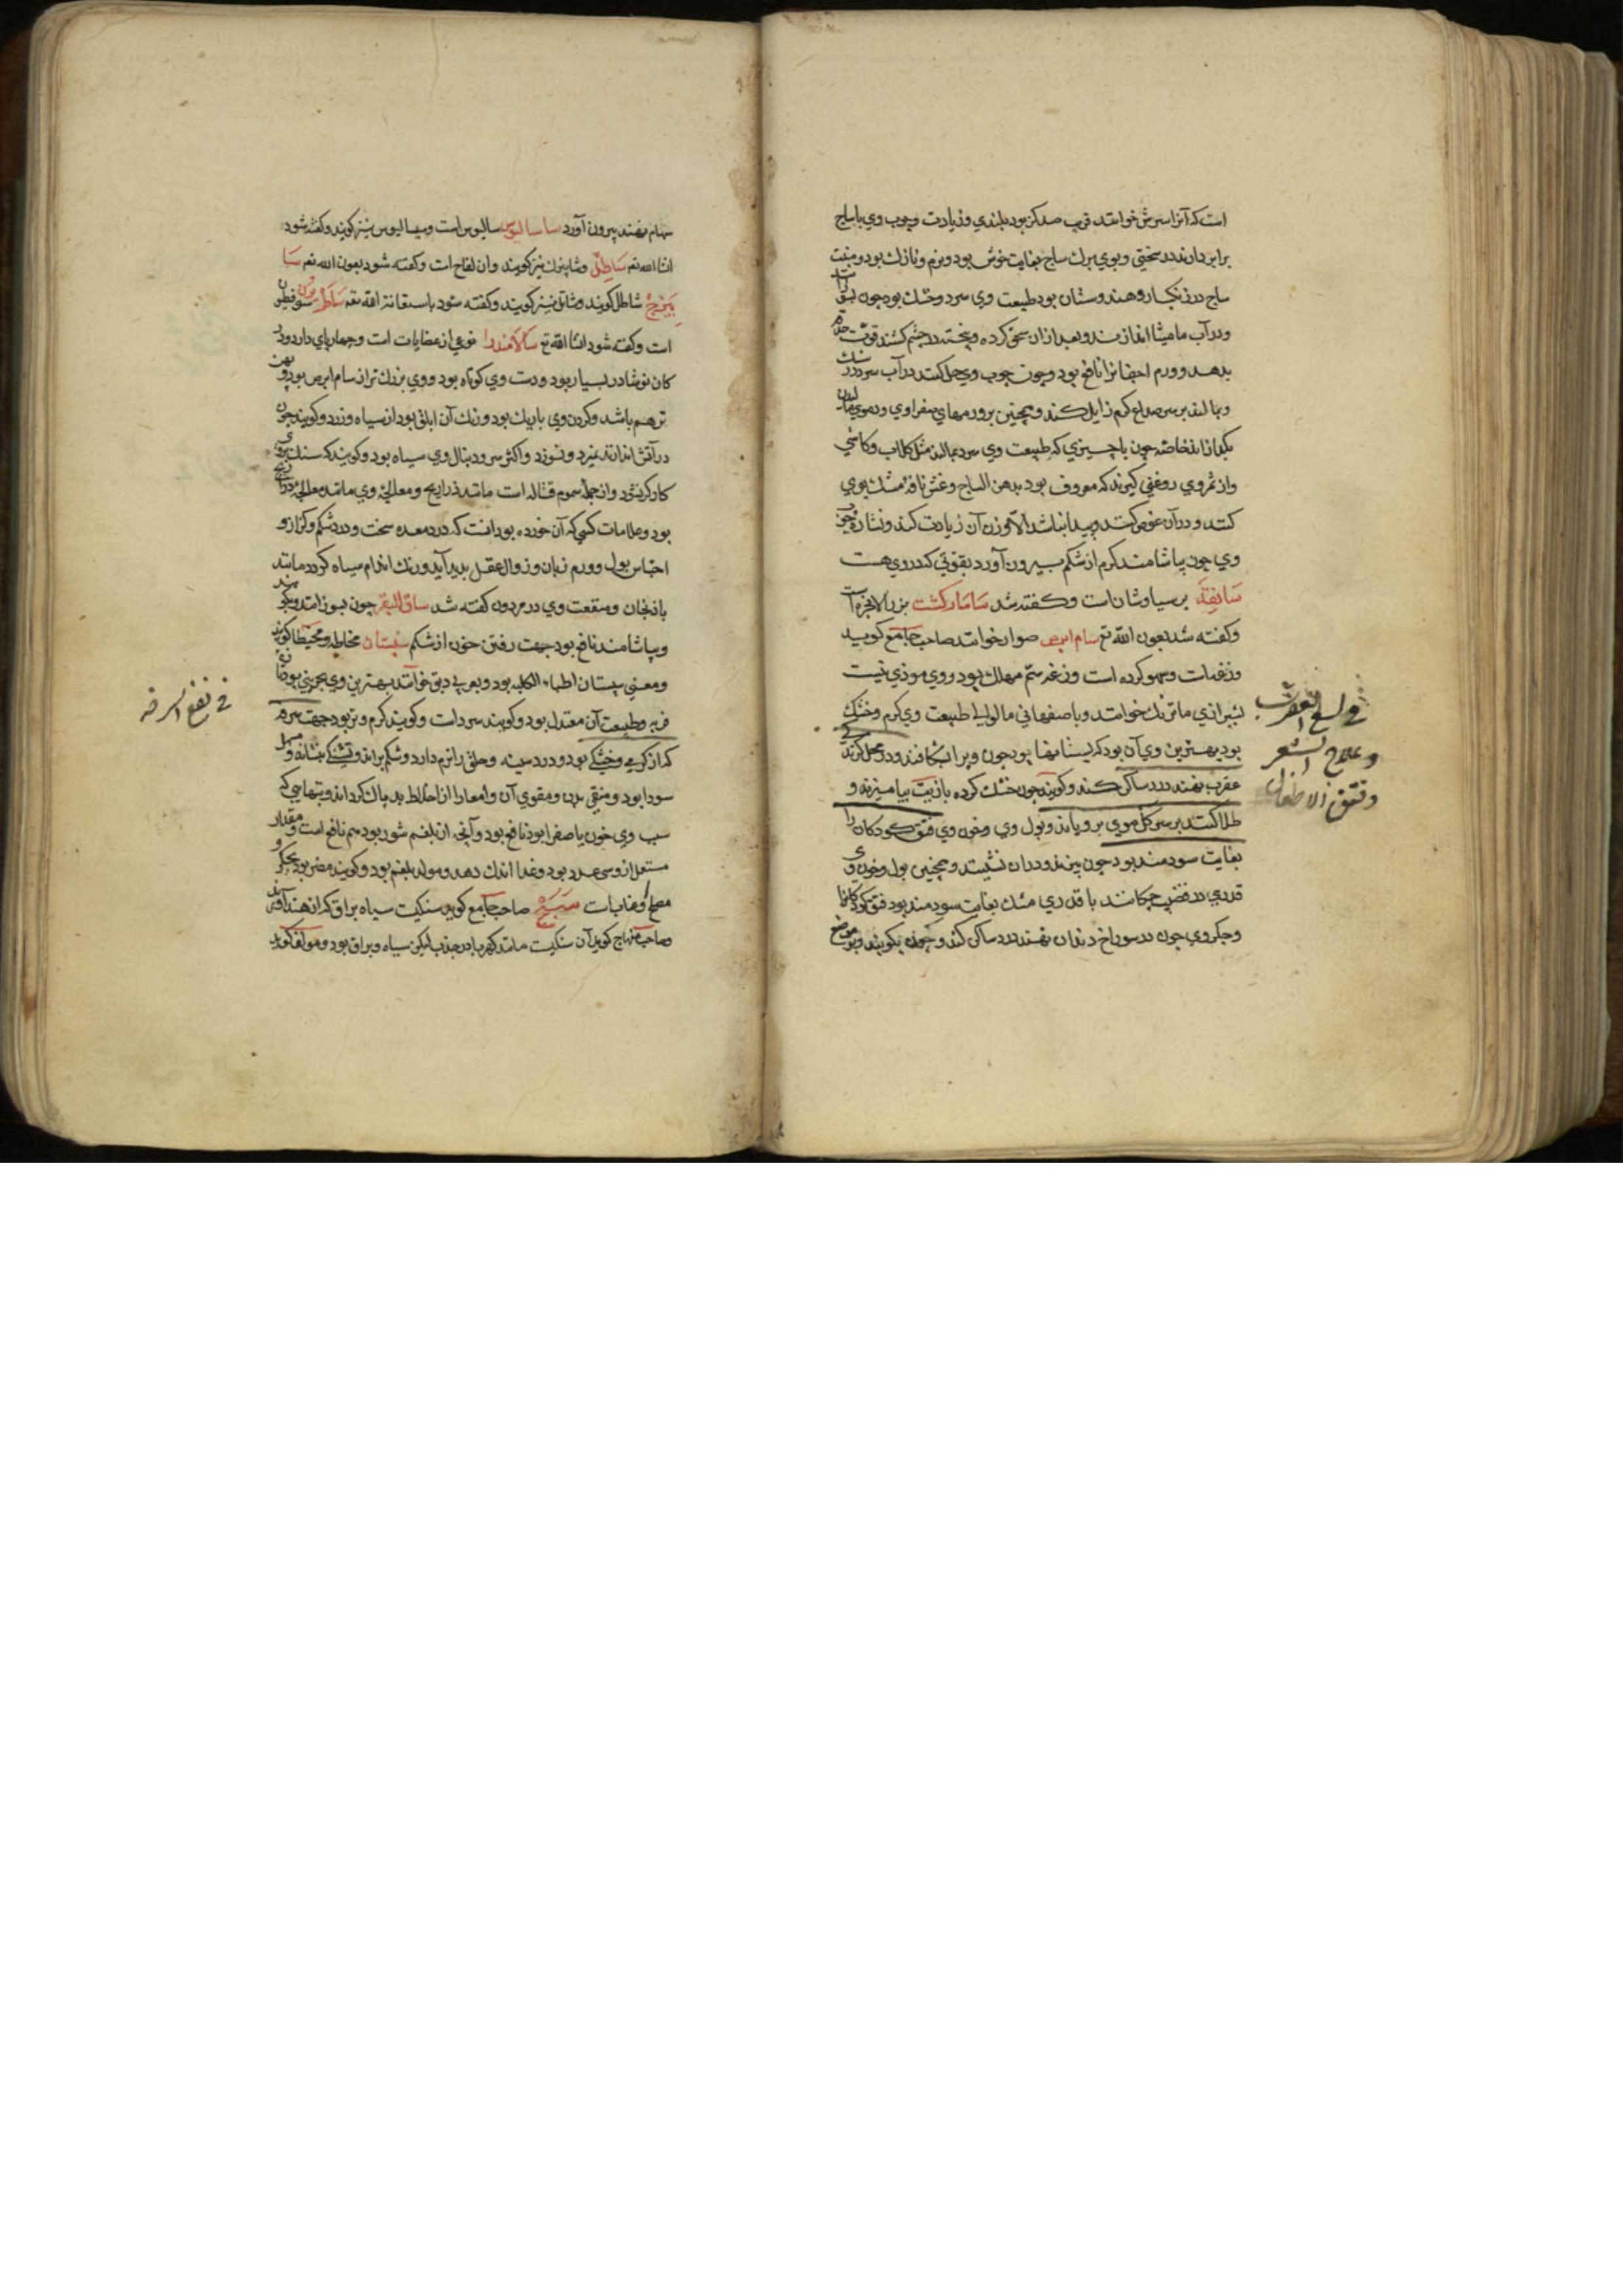 است که آنرا سرش خوانند قرب صد کز بود بلندی وزیادت وچوب وی با ساج
برابر دارند در سختی وبوی برك ساج بغایت خوش بود ونرم ونازك بود ومنبت
ساج در زنکبار وهندوستان بود طبیعت وی سرد وخشك بود چون
ودر آب مامیثا اندازند وبعد از آن سحق کرده وپخته در چشم کشند قوت حدقه
بدهد وورم اجفانرا نافع بود وچون چوب وی حل کنند در آب سرد
وبمالند بر سر صداع کرم زایل کند وهمچنین بر ورمهای صفراوی ودموی
بکدازاند خاصه چون با چیزی که طبیعت وی سرد بمالند مثل کلاب وکاسنی
واز ثمر وی روغنی کیرند که معروف بود بدهن الساج وغش نافه مشك بوی
کنند ودر آن غوص کند وپیدا نباشد الا وزن آن زیادت کند ونشاره چوب
وی چون بیاشامند کرم از شکم بیرون آورد بقوتی که در وی هست
سانقه برسیاوشان است وکفته شد سامارکشت بزر الانجره است
وکفته شد بعون الله تع سام ابرص صوار خوانند صاحب جامع کوید
وزغه است وسهو کرده است وزغه سم مهلك بود ووی موذی نیست
بشیرازی ماترنك خوانند وباصفهانی مالوای طبیعت وی کرم وخشك
بود بهترین وی آن بود که بستانها بود چون ویرا بشکافند وبر محل کزند
عقرب نهند درد ساکن کند وکویند چون خشك کرده با زیت بیامیزند و
طلا کنند بر سر کل موی برویاند وبول وی وخون وی فتق کودکان را
بغایت سودمند بود چون بپزند ودر آن نشینند وهمچنین بول وخون وی
قدری در قضیب چکانند با قدری مشك بغایت سودمند بود فتق کودکانرا
وجکر وی چون در سوراخ دندان نهند درد ساکن کند وچون بکوبند وبر موضع
فی لسع العقرب
وعلاج الشعر
وفتق الاطفال
سهام نهند بیرون آورد ساسالیوس سالیوس است وسیسالیوس نیز کویند وکفته شود
انشا الله تعه ساطل وشابنوك نیز کویند وآن لفاح است وکفته شود بعون الله تعه سا
بیزج شاطل کویند وشاتل نیز کویند وکفته شود باستعانة الله تعه
است وکفته شود انشا الله تع سالامندرا نوعی از عضایات است وچهار پای دارد ودر
کان نوشادر بسیار بود ودست وی کوتاه بود ووی بزرك تر از سام ابرص بود وپهن
تر هم باشد وکردن وی باریك بود ورنك آن ابلق بود از سیاه وزرد وکویند چون
در آتش اندازند نمیرد ونسوزد واکثر سر ودنبال وی سیاه بود وکویند که سنك بر وی
کارکر نشود واز جمله سموم قتاله است مانند ذراریح ومعالجۀ وی مانند معالجۀ ذراریح
بود وعلامات کسی که آن خورده بود آنست که درد معده سخت ودرد شکم وکزاز و
احتباس بول وورم زبان وزوال عقل پدید آید ورنك اندام سیاه کردد مانند
بادنجان ومنفعت وی در مردون کفته شد ساق البقر چون بسوزانند وبکوبند
وبیاشامند نافع بود جهت رفتن خون از شکم سبستان مخاطه ومخیطا کویند
ومعنی سبستان اطباء الکلبه بود وبعربی دبق خوانند بهترین وی بحرینی بود
فربه وطبیعت آن معتدل بود وکویند سرد است وکویند کرم وتر بود جهت سرفه
که از کرمی وخشکی بود ودرد سینه وحلق را نرم دارد وشکم براند وتشنکی بنشاند ومسهل
سودا بود ومنقی بدن ومقوی آن وامعا را از اخلاط بد پاك کرداند وتبهایی که
سبب وی خون یا صفرا بود نافع بود وآنچه از بلغم شور بود هم نافع است ومقدار
مستعمل از وسی عدد بود وغذا اندك دهد ومولد بلغم بود وکویند مضر بود بجکر و
مصلح او عناب است سبج صاحب جامع کوید سنکیست سیاه براق که از هند آورند
وصاحب منهاج کوید آن سنکیست مانند کهربا در جذب لیکن سیاه وبراق بود ومولف کوید
فی نفع السرفه